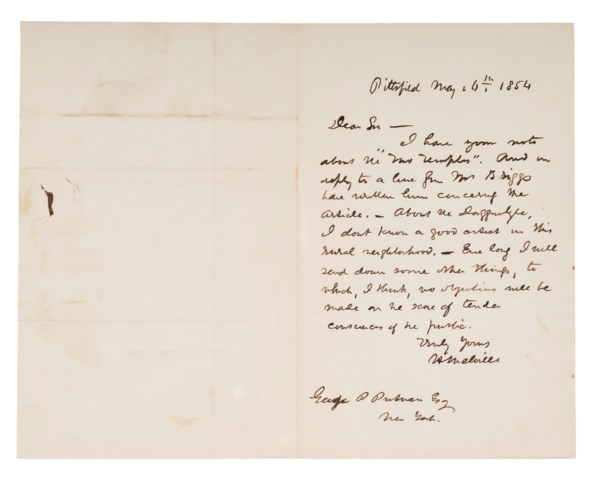 Pittsfield May 16th 1854
Dear Sir —
I have your note
about the "Two Temples". And in
reply to a line from Mr Briggs
have written him concerning the
article. — About the Dagguerlype,
I dont know a good artist in this
rural neighborhood. — Ere long I will
send down some other things, to
which, I think, no objections will be
made on the score of tender
consciences of the public.
Truly Yours
H Melville
George P Putnam Esq
New York.